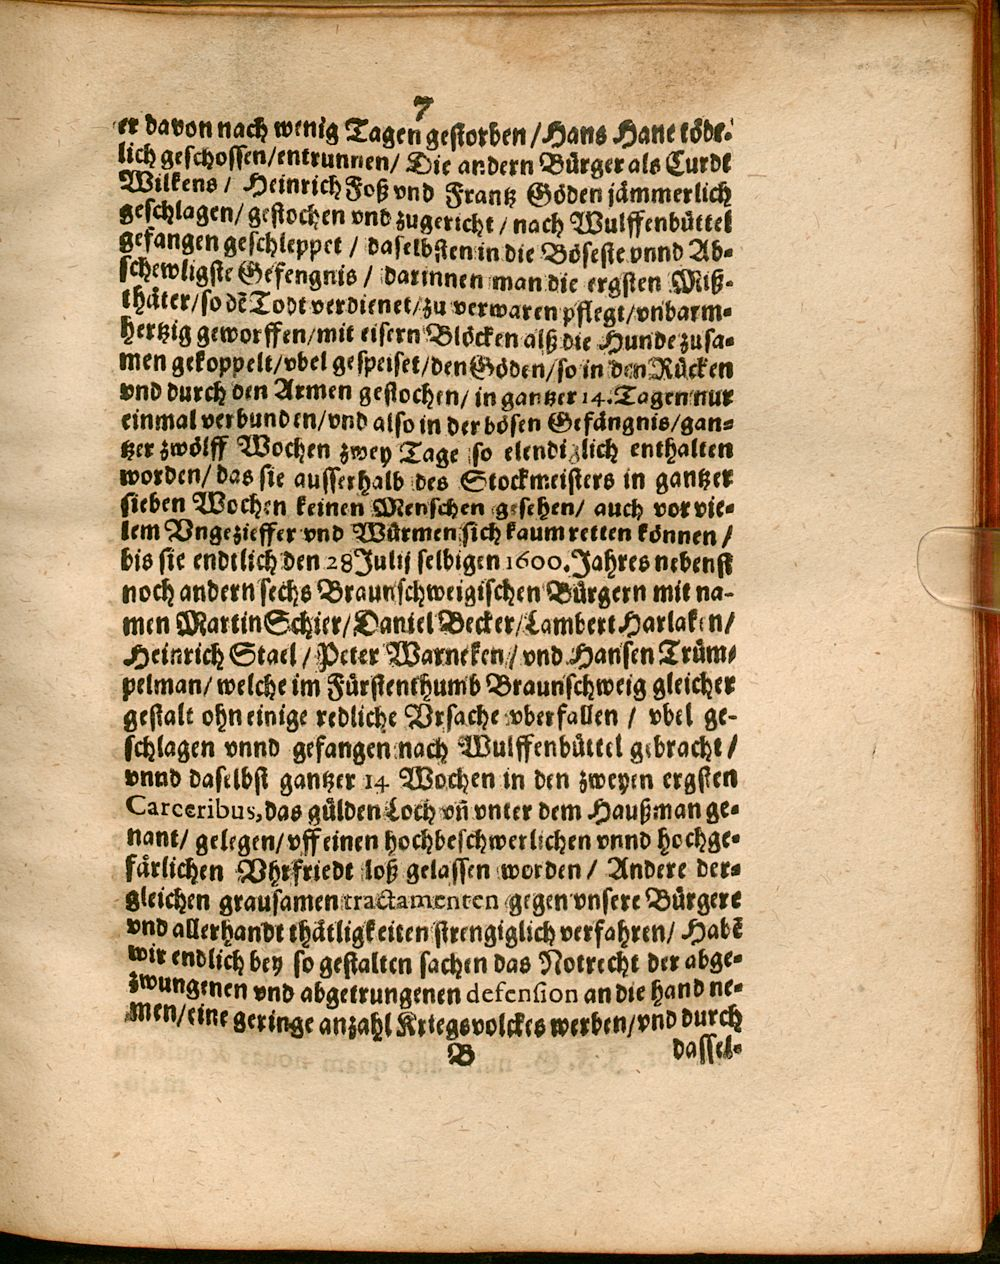 7
er davon nach wenig Tagen gestorben / Hans Hane tödt-
lich geschossen/entrunnen/ Die andern Bürger als Curdt
Wilkens / Heinrich Foß vnd Frantz Göden jämmerlich
geschlagen/ gestochen vnd zugericht / nach Wulffenbüttel
gefangen geschleppet / daselbsten in die Böseste vnnd Ab-
schewligste Gefengnis / darinnen man die ergsten Miß-
thäter/so dē Todt verdienet/zu verwaren pflegt/vnbarm-
hertzig geworffen/mit eisern Blöcken alß die Hunde zusa-
men gekoppelt/vbel gespeiset/den Göden/so in den Rücken
vnd durch den Armen gestochen/ in gantzer 14. Tagen nur
einmal verbunden/vnd also in der bösen Gefängnis/gan-
tzer zwölff Wochen zwey Tage so elendiglich enthalten
worden/ das sie ausserhalb des Stockmeisters in gantzer
sieben Wochen keinen Menschen gesehen/ auch vor vie-
lem Vngezieffer vnd Würmen sich kaum retten können /
bis sie endtlich den 28 Julij selbigen 1600. Jahres nebenst
noch andern sechs Braunschweigischen Bürgern mit na-
men Martin Schier/Daniel Becker/Lambert Harlaken/
Heinrich Stael / Peter Warneken / vnd Hansen Trüm-
pelman/ welche im Fürstenthumb Braunschweig gleicher
gestalt ohn einige redliche Vrsache vberfallen / vbel ge-
schlagen vnnd gefangen nach Wulffenbüttel gebracht /
vnnd daselbst gantzer 14 Wochen in den zweyen ergsten
Carceribus, das gülden Loch vñ vnter dem Haußman ge-
nant/ gelegen/ vff einen hochbeschwerlichen vnnd hochge-
färlichen Vhrfriedt loß gelassen worden / Andere der-
gleichen grausamen tractamenten gegen vnsere Bürgere
vnd allerhandt thätligkeiten strengiglich verfahren/ Habē
wir endlich bey so gestalten sachen das Notrecht der abge-
zwungenen vnd abgetrungenen defension an die hand ne-
men/eine geringe anzahl Kriegsvolckes werben/vnd durch
B dassel-